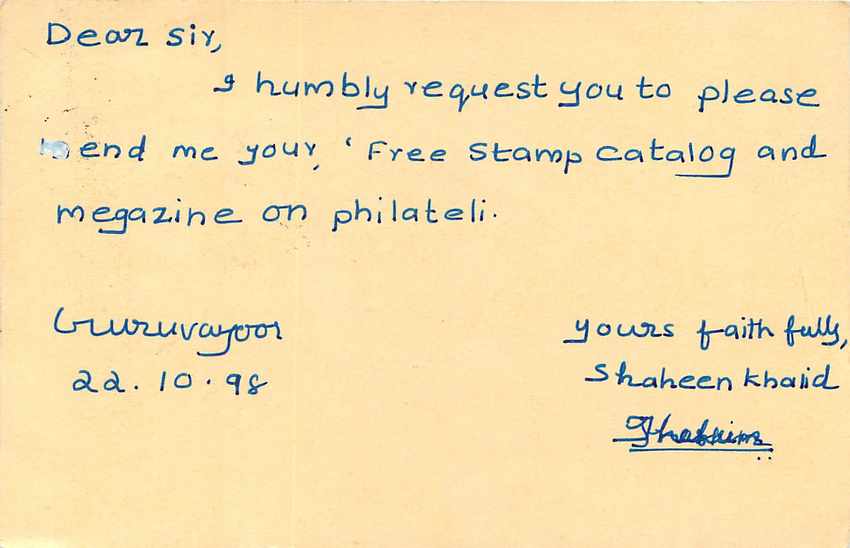 Dear Sir,
I humbly request you to please
send me your, ‘Free Stamp Catalog and
megazine on philateli.
Guruvayoor
22.10.98
yours faithfully,
Shaheen Khalid